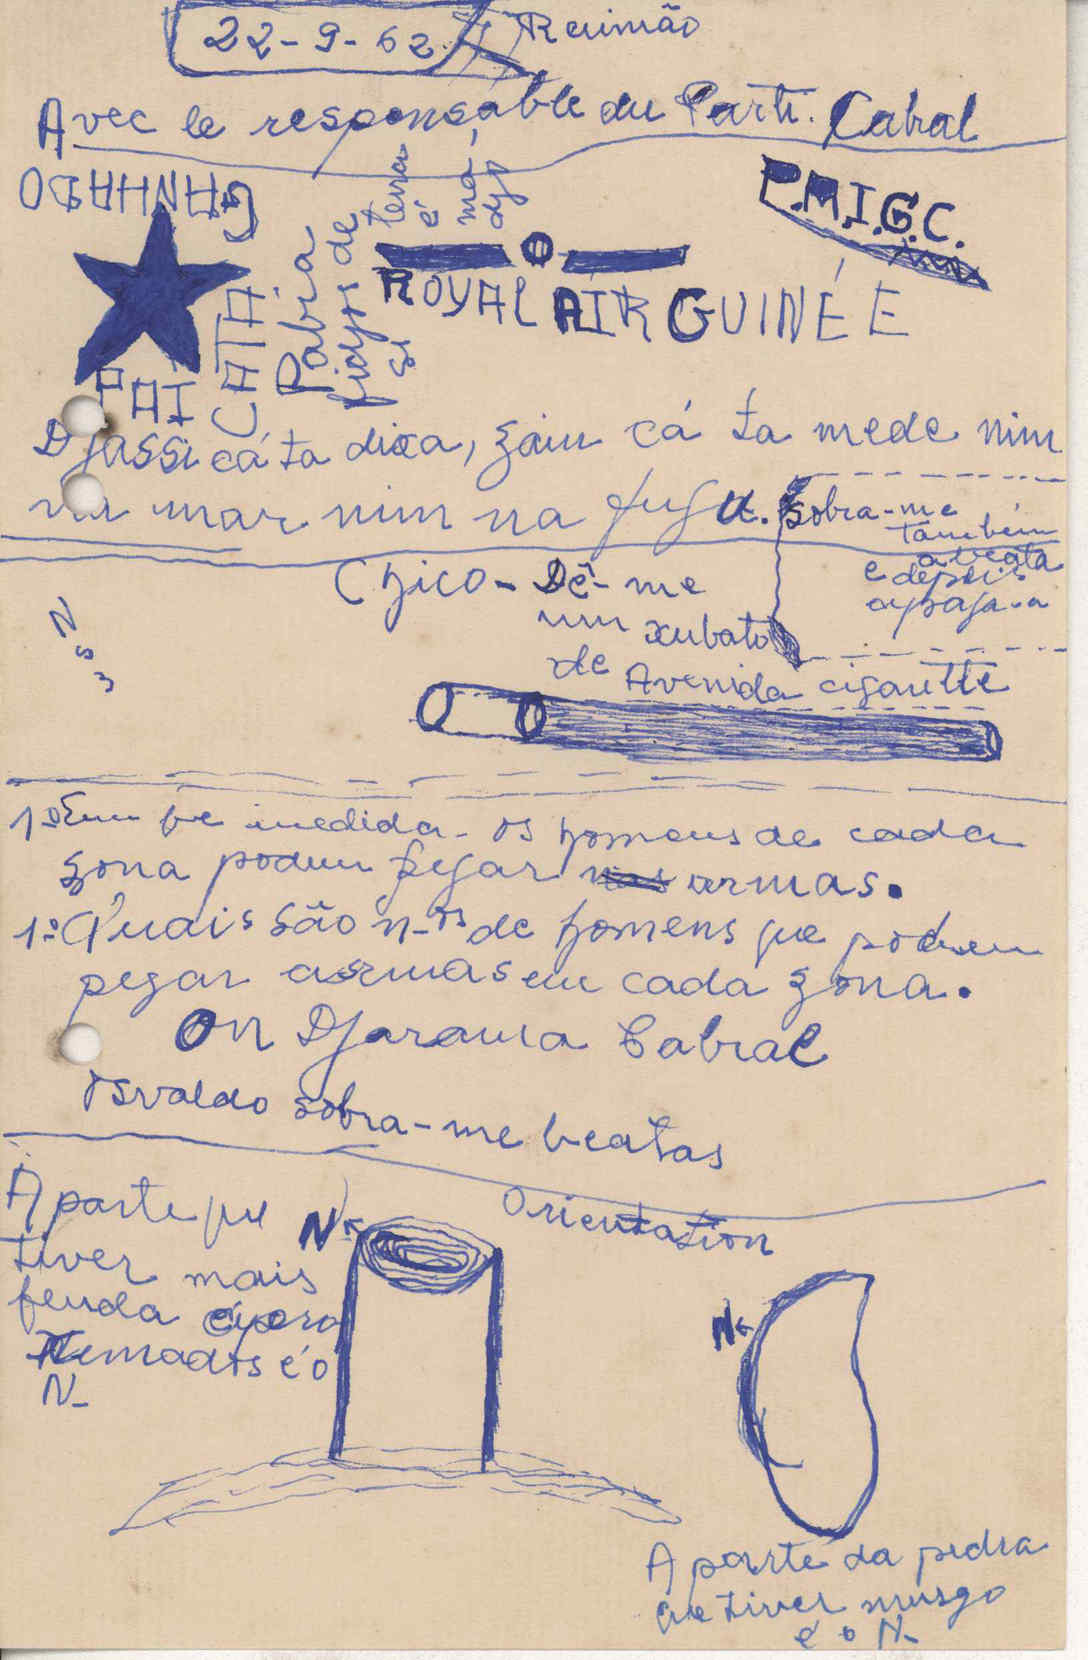 22-9-62. Reunião
Avec le responsable du Parti. Cabral
GANHADO
PAI
CATA
Pabia
fidjos de
terra
é
P.A.I.G.C.
ROYAL AIR GUINÉE
Djassi cá ta dixa, gaiu cá ta mede nim
na mar nim na fuga.
sobra-me
também
a beata
e depois
apaga-a
Chico - Dê-me
um xubato
de Avenida cigarette
N
S
1º Em que medida - os homens de cada
zona podem pegar armas.
1º Quais são n-os de homens que podem
pegar armas em cada zona.
On Djarama Cabral
Osvaldo sobra-me beatas
Orientation
A parte que
tiver mais
fenda
é o
N-
N
N
A parte da pedra
que tiver musgo
é o N-